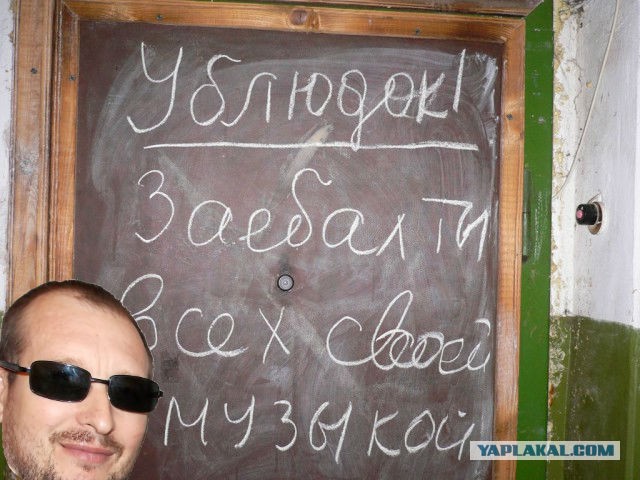 Ублюдок!
Заебал ты
всех своей
музыкой
YAPLAKAL.COM